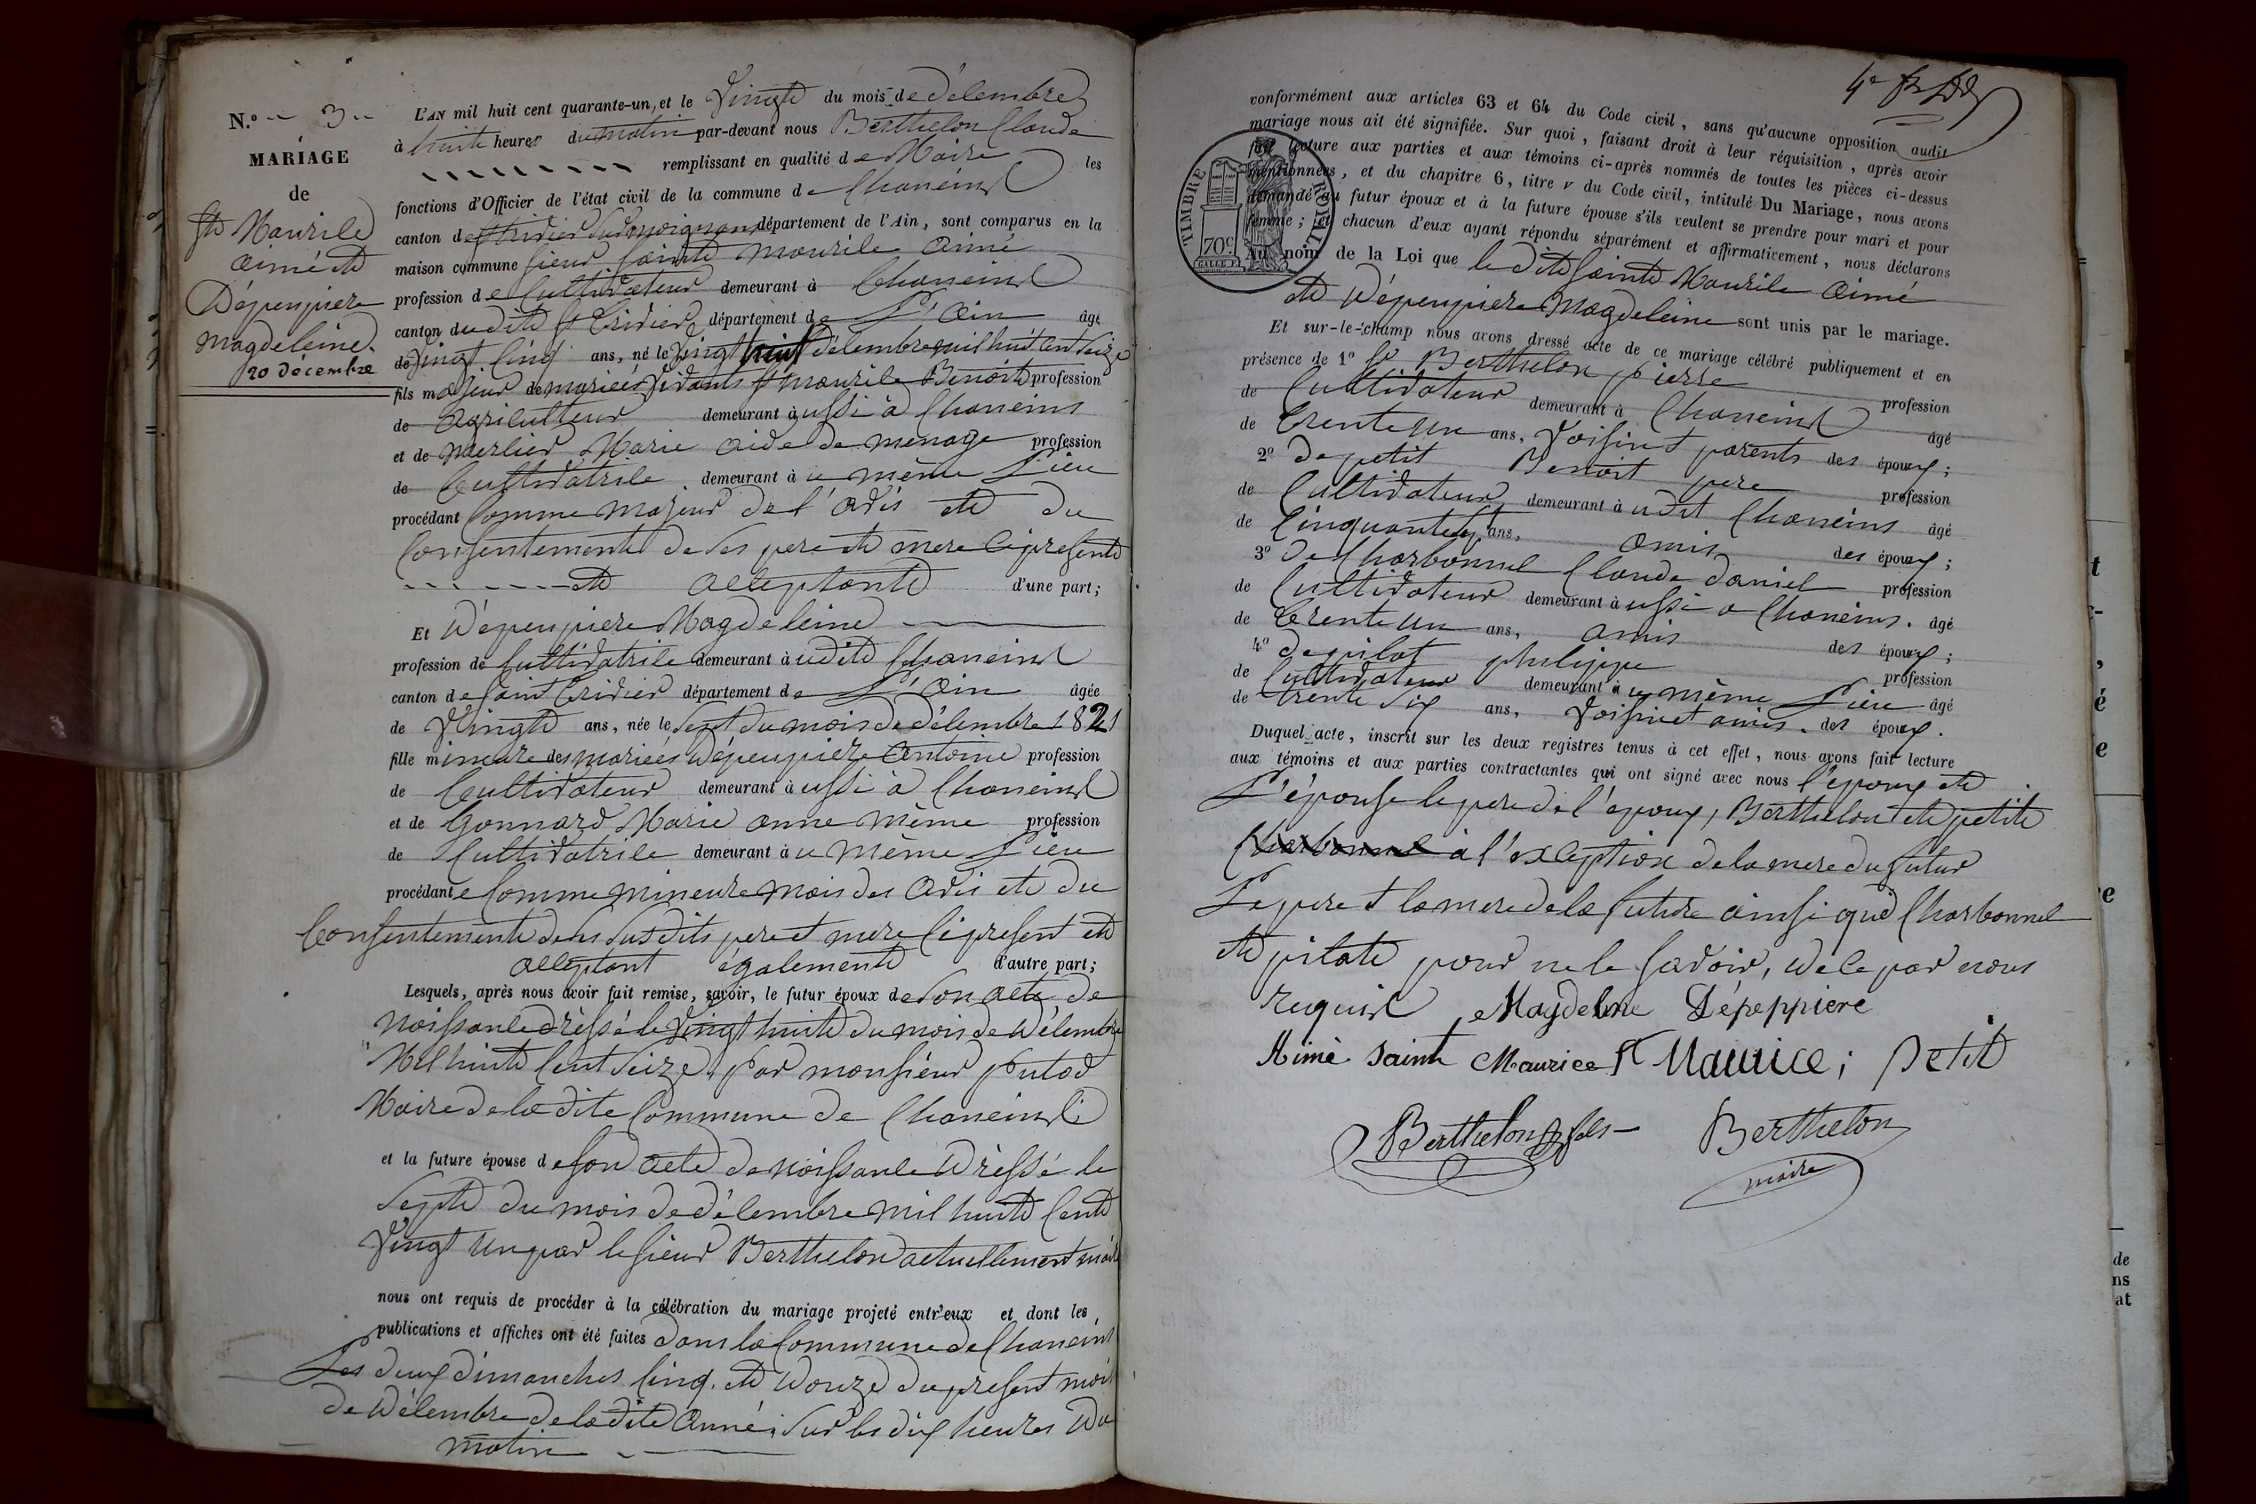 N.o 3
MARIAGE
de
St Maurice
aimé et
Dépeupiere
Magdeleine.
20 Décembre
L'AN mil huit cent quarante-un, et le Vingt du mois de décembre
à huit heures du matin par-devant nous Berthelon Claude
remplissant en qualité de Maire les
fonctions d'Officier de l'état civil de la commune de Chaneins
canton de département de l'Ain, sont comparus en la
maison commune sieur Sainte Maurice Aimé
profession de Cultivateur demeurant à Chaneins
canton dudit St Trivier département de L'Ain âgé
de Vingt Cinq ans, né le Vingt huit décembre mil huit cent seize
fils majeur de mariées Vivants St Maurice Benoit profession
de Agriculteur demeurant à ussi à Chaneins
et de Merlier Marie aide de menage profession
de Cultivatrice demeurant à u même Lieu
procédant Comme majeur de l'avis et du
Consentement de ses pere et mere ci present
et acceptant d'une part;
Et Dépeupiere Magdeleine
profession de Cultivatrice demeurant à udit Chaneins
canton de Saint Trivier département de L'Ain âgée
de Vingt ans, née le Sept du mois de décembre 1821
fille mineure des mariées Dépeupiere Antoine profession
de Cultivateur demeurant à ussi à Chaneins
et de Gonnard Marie anne même profession
de Cultivatrice demeurant à u même Lieu
procédante Comme mineure mais des avis et du
Consentement de ses susdits pere et mere ci present et
acceptant également d'autre part;
Lesquels, après nous avoir fait remise, savoir, le futur époux de son acte de
Naissance dréssé le Vingt huit du mois de décembre
Mil huit Cent Seize, par monsieur Putod
Maire de la dite Commune de Chaneins
et la future épouse de son acte de naissance dréssé le
Sept du mois de décembre mil huit Cent
Vingt un par le sieur Berthelon actuellement maire
nous ont requis de procéder à la célébration du mariage projeté entr'eux et dont les
publications et affiches ont été faites dans la Commune de Chaneins
Les deux dimanches Cinq et douze du présent mois
de décembre de la dite année, sur les dix heures du
matin
conformément aux articles 63 et 64 du Code civil, sans qu'aucune opposition audit
mariage nous ait été signifiée. Sur quoi, faisant droit à leur réquisition, après avoir
fait lecture aux parties et aux témoins ci-après nommés de toutes les pièces ci-dessus
mentionnées, et du chapitre 6, titre V du Code civil, intitulé Du Mariage, nous avons
demandé au futur époux et à la future épouse s'ils veulent se prendre pour mari et pour
femme; et chacun d'eux ayant répondu séparément et affirmativement, nous déclarons
Au nom de la Loi que le dit Sainte Maurice Aimé
TIMBRE ROYAL
70c.
et Dépeupiere Magdeleine sont unis par le mariage.
Et sur-le-champ nous avons dressé acte de ce mariage célébré publiquement et en
présence de 1o Berthelon pierre profession
de Cultivateur demeurant à Chaneins âgé
de Trente un ans, Voisin et parents des époux;
2o De petit Benoit pere profession
de Cultivateur demeurant à udit Chaneins âgé
de ans, amis des époux;
3o De Charbonnel Claude daniel profession
de Cultivateur demeurant à ussi a Chaneins. âgé
de Trente un ans, amis des époux;
4o De pilat philippe profession
de Cultivateur demeurant à u même Lieu âgé
de trente six ans, Voisin et amis. des époux.
Duquel acte, inscrit sur les deux registres tenus à cet effet, nous avons fait lecture
aux témoins et aux parties contractantes qui ont signé avec nous l'époux et
L'épouse le pere de l'époux, Berthelon et petit
Charbonnel à l'exception de la mere du futur
Le pere et la mere de la future ainsi que Charbonnel
et pilat pour ne le savoir, de ce par nous
requis Magdelene Dépeppiere
Aimé Saint Maurice St Maurice; Petit
Berthelon fils Berthelon
maire